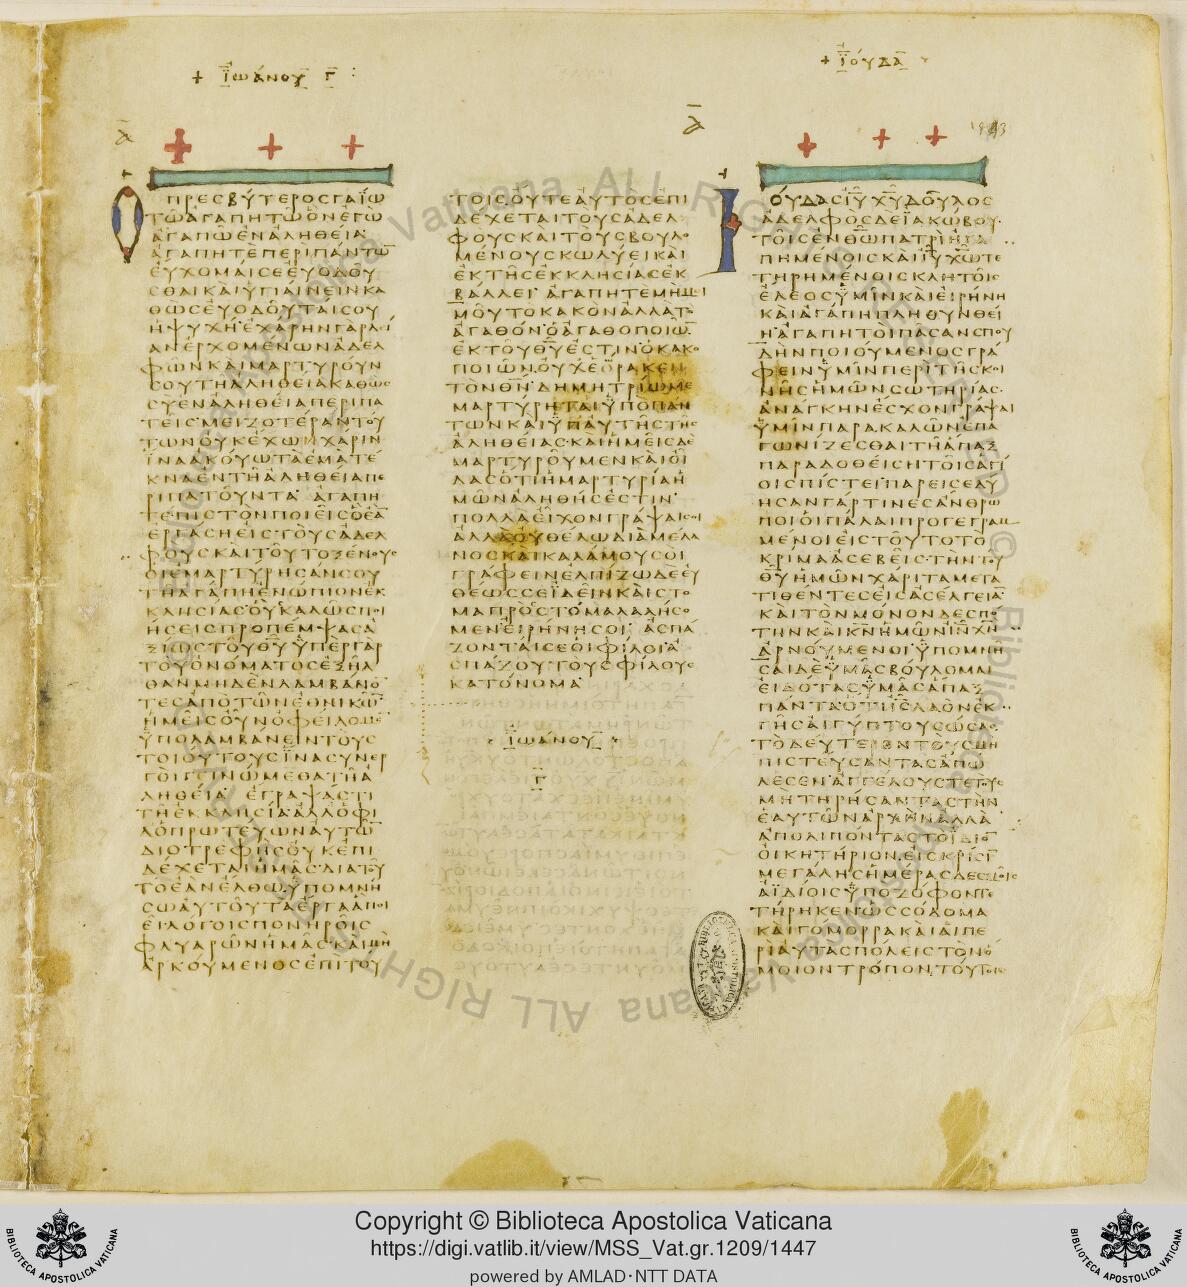 + ΙΩΑΝΟΥ Γ
+ ΙΟΥΔΑ
Α
ΟΠΡΕΣΒΥΤΕΡΟΣΓΑΪΩ
ΤΩΑΓΑΠΗΤΩΟΝΕΓΩ
ΑΓΑΠΩΕΝΑΛΗΘΕΙΑ
ΑΓΑΠΗΤΕΠΕΡΙΠΑΝΤΩ
ΕΥΧΟΜΑΙΣΕΕΥΟΔΟΥ
ΣΘΑΙΚΑΙΥΓΙΑΙΝΕΙΝΚΑ
ΘΩΣΕΥΟΔΟΥΤΑΙΣΟΥ
ΗΨΥΧΗΕΧΑΡΗΝΓΑΡΛΕΙ
ΑΝΕΡΧΟΜΕΝΩΝΑΔΕΛ
ΦΩΝΚΑΙΜΑΡΤΥΡΟΥΝ
ΣΟΥΤΗΑΛΗΘΕΙΑΚΑΘΩΣ
ΣΥΕΝΑΛΗΘΕΙΑΠΕΡΙΠΑ
ΤΕΙΣΜΕΙΖΟΤΕΡΑΝΤΟΥ
ΤΩΝΟΥΚΕΧΩΧΑΡΙΝ
ΙΝΑΑΚΟΥΩΤΑΕΜΑΤΕ
ΚΝΑΕΝΤΗΑΛΗΘΕΙΑΠΕ
ΡΙΠΑΤΟΥΝΤΑ ΑΓΑΠΗ
ΤΕΠΙΣΤΟΝΠΟΙΕΙΣΟΕΑ
ΕΡΓΑΣΗΕΙΣΤΟΥΣΑΔΕΛ
ΦΟΥΣΚΑΙΤΟΥΤΟΞΕΝΟΥΣ
ΟΙΕΜΑΡΤΥΡΗΣΑΝΣΟΥ
ΤΗΑΓΑΠΗΕΝΩΠΙΟΝΕΚ
ΚΛΗΣΙΑΣΟΥΣΚΑΛΩΣΠΟΙ
ΗΣΕΙΣΠΡΟΠΕΜΨΑΣΑ
ΞΙΩΣΤΟΥΘΥΥΠΕΡΓΑΡ
ΤΟΥΟΝΟΜΑΤΟΣΕΞΗΛ
ΘΑΝΜΗΔΕΝΛΑΜΒΑΝΟ
ΤΕΣΑΠΟΤΩΝΕΘΝΙΚΩ
ΗΜΕΙΣΟΥΝΟΦΕΙΛΟΜΕ
ΥΠΟΛΑΜΒΑΝΕΙΝΤΟΥΣ
ΤΟΙΟΥΤΟΥΣΪΝΑΣΥΝΕΡ
ΓΟΙΓΕΙΝΩΜΕΘΑΤΗΑ
ΛΗΘΕΙΑ ΕΓΡΑΨΑΣΤΙ
ΤΗΕΚΚΛΗΣΙΑΑΛΛΟΦΙ
ΛΟΠΡΩΤΕΥΩΝΑΥΤΩ
ΔΙΟΤΡΕΦΗΣΟΥΚΕΠΙ
ΔΕΧΕΤΑΙΗΜΑΣΔΙΑΤΟΥ
ΤΟΕΑΝΕΛΘΩΥΠΟΜΝΗ
ΣΩΑΥΤΟΥΤΑΕΡΓΑΑΠΟΙ
ΕΙΛΟΓΟΙΣΠΟΝΗΡΟΙΣ
ΦΛΥΑΡΩΝΗΜΑΣΚΑΙΜΗ
ΑΡΚΟΥΜΕΝΟΣΕΠΙΤΟΥ
ΤΟΙΣΟΥΤΕΑΥΤΟΣΕΠΙ
ΔΕΧΕΤΑΙΤΟΥΣΑΔΕΛ
ΦΟΥΣΚΑΙΤΟΥΣΒΟΥΛΟ
ΜΕΝΟΥΣΚΩΛΥΕΙΚΑΙ
ΕΚΤΗΣΕΚΚΛΗΣΙΑΣΕΚ
ΒΑΛΛΕΙ ΑΓΑΠΗΤΕΜΗΜΙ
ΜΟΥΤΟΚΑΚΟΝΑΛΛΑΤΟ
ΑΓΑΘΟΝΟΑΓΑΘΟΠΟΙΩ
ΕΚΤΟΥΘΥΕΣΤΙΝΟΚΑΚΟ
ΠΟΙΩΝΟΥΧΕΟΡΑΚΕΝ
ΤΟΝΘΝ ΔΗΜΗΤΡΙΩΜΕ
ΜΑΡΤΥΡΗΤΑΙΥΠΟΠΑΝ
ΤΩΝΚΑΙΥΠΑΥΤΗΣΤΗΣ
ΑΛΗΘΕΙΑΣΚΑΙΗΜΕΙΣΔΕ
ΜΑΡΤΥΡΟΥΜΕΝΚΑΙΟΙ
ΔΑΣΟΤΙΗΜΑΡΤΥΡΙΑΗ
ΜΩΝΑΛΗΘΗΣΕΣΤΙΝ
ΠΟΛΛΑΕΙΧΟΝΓΡΑΨΑΙΣΟΙ
ΑΛΛΑΟΥΘΕΛΩΔΙΑΜΕΛΑ
ΝΟΣΚΑΙΚΑΛΑΜΟΥΣΟΙ
ΓΡΑΦΕΙΝΕΛΠΙΖΩΔΕΕΥ
ΘΕΩΣΣΕΪΔΕΙΝΚΑΙΣΤΟ
ΜΑΠΡΟΣΣΤΟΜΑΛΑΛΗΣΟ
ΜΕΝΕΙΡΗΝΗΣΟΙ ΑΣΠΑ
ΖΟΝΤΑΙΣΕΟΙΦΙΛΟΙΑ
ΣΠΑΖΟΥΤΟΥΣΦΙΛΟΥΣ
ΚΑΤΟΝΟΜΑ
ΙΩΑΝΟΥ
Γ
Α
ΙΟΥΔΑΣΙΥΧΥΔΟΥΛΟΣ
ΑΔΕΛΦΟΣΔΕΪΑΚΩΒΟΥ
ΤΟΙΣΕΝΘΩΠΑΤΡΙΗΓΑ
ΠΗΜΕΝΟΙΣΚΑΙΙΥΧΩΤΕ
ΤΗΡΗΜΕΝΟΙΣΚΛΗΤΟΙΣ
ΕΛΕΟΣΥΜΙΝΚΑΙΕΙΡΗΝΗ
ΚΑΙΑΓΑΠΗΠΛΗΘΥΝΘΕΙ
ΗΑΓΑΠΗΤΟΙΠΑΣΑΝΣΠΟΥ
ΔΗΝΠΟΙΟΥΜΕΝΟΣΓΡΑ
ΦΕΙΝΥΜΙΝΠΕΡΙΤΗΣΚΟΙ
ΝΗΣΗΜΩΝΣΩΤΗΡΙΑΣ
ΑΝΑΓΚΗΝΕΣΧΟΝΓΡΑΨΑΙ
ΥΜΙΝΠΑΡΑΚΑΛΩΝΕΠΑ
ΓΩΝΙΖΕΣΘΑΙΤΗΑΠΑΞ
ΠΑΡΑΔΟΘΕΙΣΗΤΟΙΣΑΓΙ
ΟΙΣΠΙΣΤΕΙΠΑΡΕΙΣΕΔΥ
ΗΣΑΝΓΑΡΤΙΝΕΣΑΝΘΡΩ
ΠΟΙΟΙΠΑΛΑΙΠΡΟΓΕΓΡΑΜ
ΜΕΝΟΙΕΙΣΤΟΥΤΟΤΟ
ΚΡΙΜΑΑΣΕΒΕΙΣΤΗΝΤΟΥ
ΘΥΗΜΩΝΧΑΡΙΤΑΜΕΤΑ
ΤΙΘΕΝΤΕΣΕΙΣΑΣΕΛΓΕΙΑ
ΚΑΙΤΟΝΜΟΝΟΝΔΕΣΠΟ
ΤΗΝΚΑΙΚΝΗΜΩΝΙΝΧΝ
ΑΡΝΟΥΜΕΝΟΙΥΠΟΜΝΗ
ΣΑΙΔΕΥΜΑΣΒΟΥΛΟΜΑΙ
ΕΙΔΟΤΑΣΥΜΑΣΑΠΑΞ
ΠΑΝΤΑΟΤΙΙΣΛΑΟΝΕΚ
ΓΗΣΑΙΓΥΠΤΟΥΣΩΣΑΣ
ΤΟΔΕΥΤΕΡΟΝΤΟΥΣΜΗ
ΠΙΣΤΕΥΣΑΝΤΑΣΑΠΩ
ΛΕΣΕΝΑΓΓΕΛΟΥΣΤΕΤΟΥΣ
ΜΗΤΗΡΗΣΑΝΤΑΣΤΗΝ
ΕΑΥΤΩΝΑΡΧΗΝΑΛΛΑ
ΑΠΟΛΙΠΟΝΤΑΣΤΟΙΔΙΟ
ΟΙΚΗΤΗΡΙΟΝΕΙΣΚΡΙΣΙ
ΜΕΓΑΛΗΣΗΜΕΡΑΣΔΕΣΜΟΙΣ
ΑΪΔΙΟΙΣΥΠΟΖΟΦΟΝΤΕ
ΤΗΡΗΚΕΝΩΣΣΟΔΟΜΑ
ΚΑΙΓΟΜΟΡΡΑΚΑΙΑΙΠΕ
ΡΙΑΥΤΑΣΠΟΛΕΙΣΤΟΝΟ
ΜΟΙΟΝΤΡΟΠΟΝΤΟΥΤΟΙΣ
Copyright © Biblioteca Apostolica Vaticana
https://digi.vatlib.it/view/MSS_Vat.gr.1209/1447
powered by AMLAD·NTT DATA
BIBLIOTECA APOSTOLICA VATICANA
BIBLIOTECA APOSTOLICA VATICANA